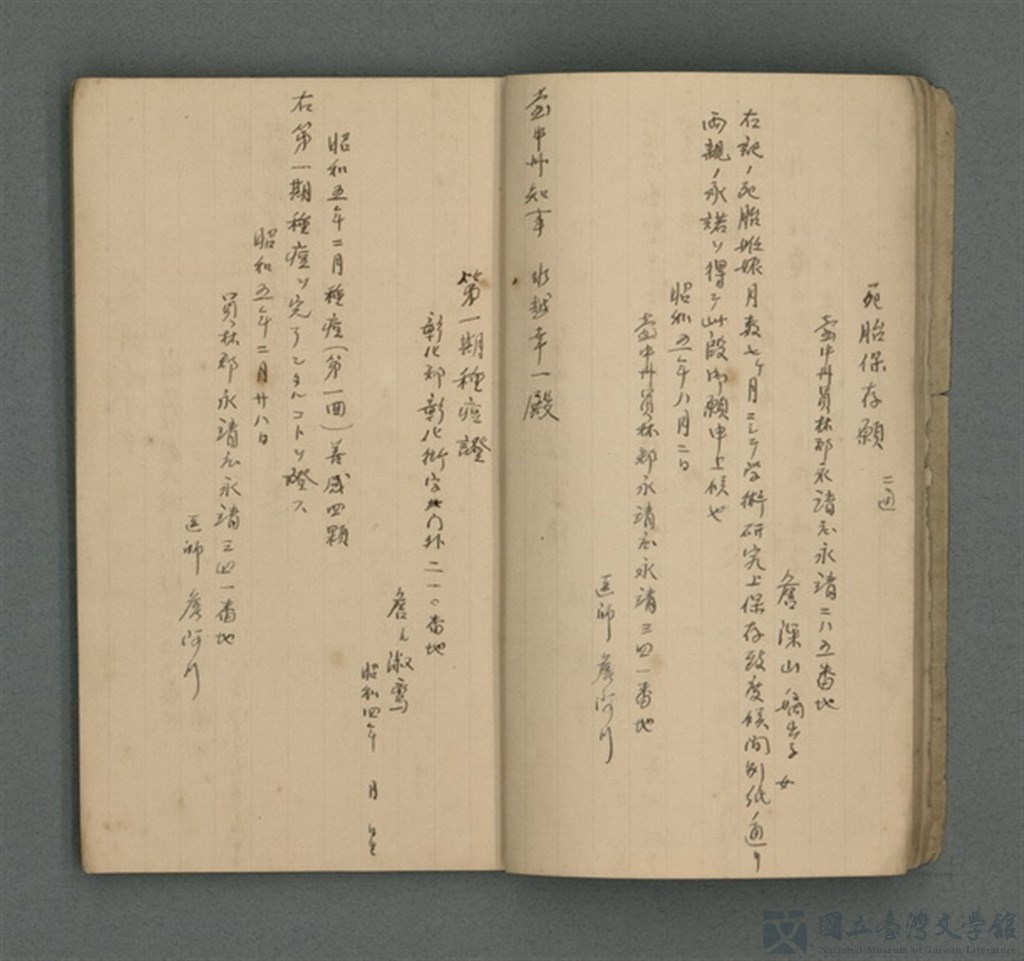 死胎保存願 二通
台中州員林郡永靖庄永靖二八五番地
詹深山 嫡出子 女
右記ノ死胎姙娠月数七ケ月ニシテ学術研究上保存致度候間別紙ノ通リ
両親ノ承諾ヲ得テ此段御願申上候也
昭和五年八月二日
台中州員林郡永靖庄永靖三四一番地
医師 詹阿川
台中州知事 水越幸一殿
第一期種痘證
彰化郡彰化街字北門外二一〇番地
詹氏淑鸞
昭和四年 月 生
昭和五年二月種痘(第一回)善感四顆
右第一期種痘ヲ完了シタルコトヲ證ス
昭和五年二月廿八日
員林郡永靖庄永靖三四一番地
医師 詹阿川
國立臺灣文學館
National Museum of Taiwan Literature